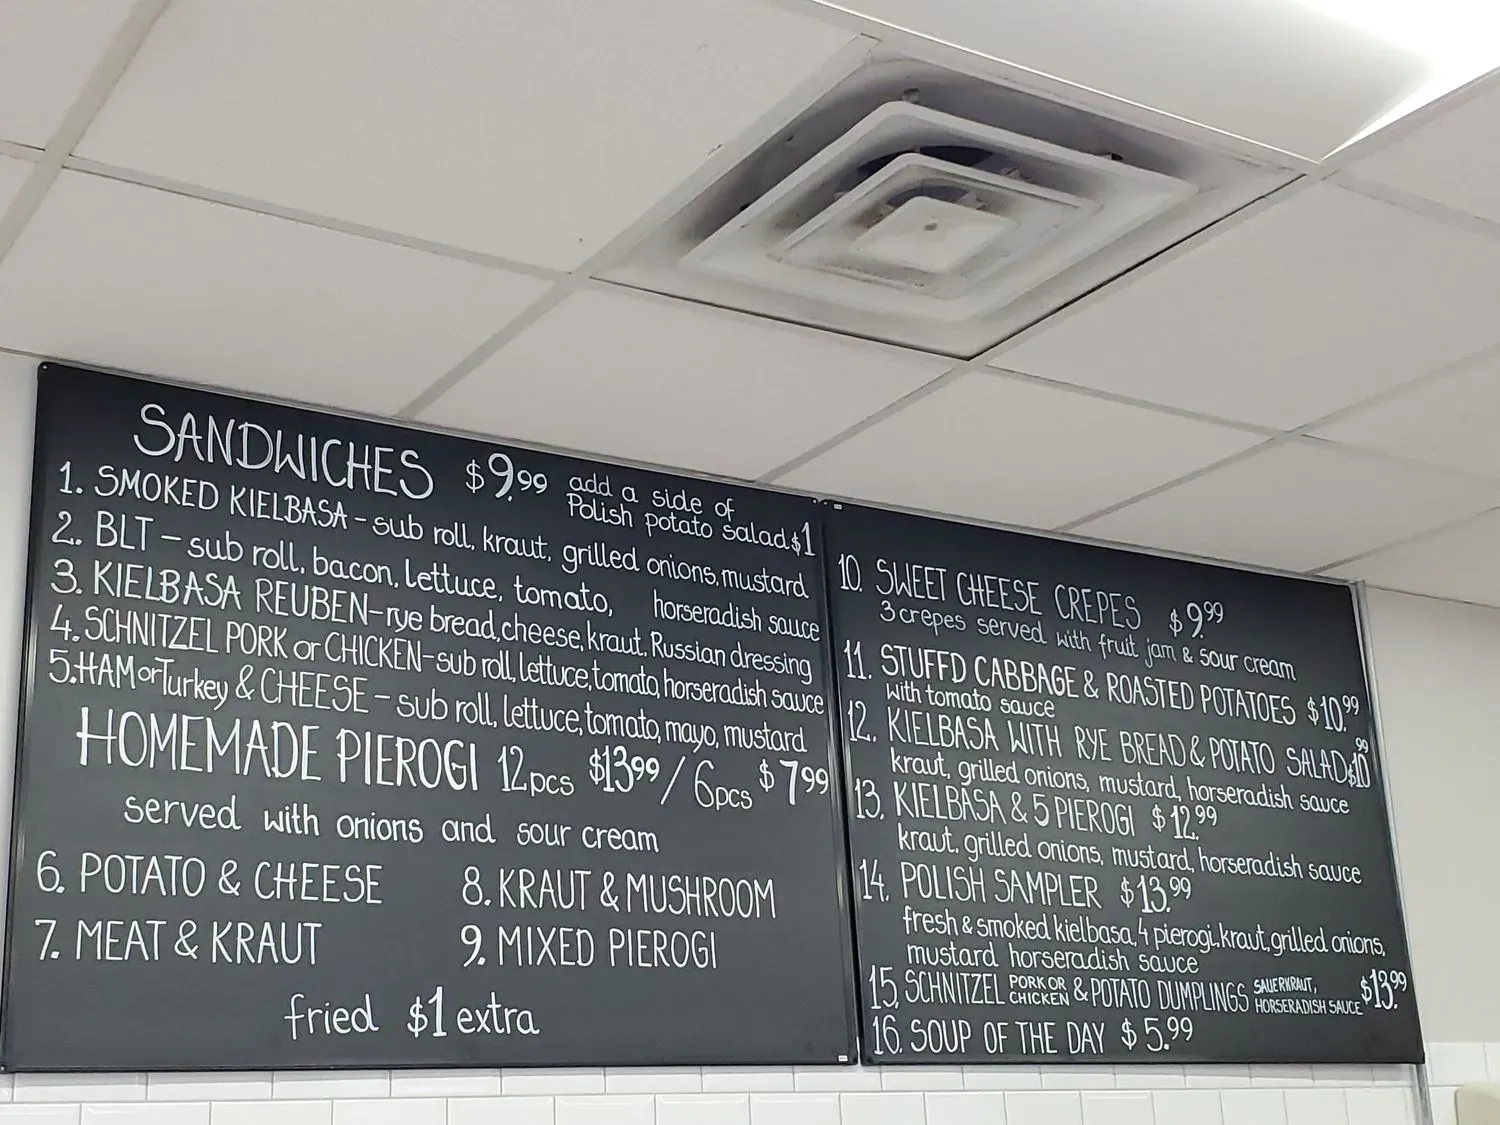 SANDWICHES $9.99 add a side of
Polish potato salad $1
1. SMOKED KIELBASA - sub roll, kraut, grilled onions, mustard
horseradish sauce
2. BLT - sub roll, bacon, lettuce, tomato,
3. KIELBASA REUBEN - rye bread, cheese, kraut, Russian dressing
4. SCHNITZEL PORK or CHICKEN - sub roll, lettuce, tomato, horseradish sauce
5. HAM or Turkey & CHEESE - sub roll, lettuce, tomato, mayo, mustard
HOMEMADE PIEROGI 12pcs $13.99 / 6pcs $7.99
served with onions and sour cream
6. POTATO & CHEESE
7. MEAT & KRAUT
8. KRAUT & MUSHROOM
9. MIXED PIEROGI
fried $1 extra
10. SWEET CHEESE CREPES $9.99
3 crepes served with fruit jam & sour cream
11. STUFFD CABBAGE & ROASTED POTATOES $10.99
with tomato sauce
12. KIELBASA WITH RYE BREAD & POTATO SALAD $10.99
kraut, grilled onions, mustard, horseradish sauce
13. KIELBASA & 5 PIEROGI $12.99
kraut, grilled onions, mustard, horseradish sauce
14. POLISH SAMPLER $13.99
fresh & smoked kielbasa, 4 pierogi, kraut, grilled onions,
mustard horseradish sauce
15. SCHNITZEL PORK OR CHICKEN & POTATO DUMPLINGS SAUERKRAUT, HORSERADISH SAUCE $13.99
16. SOUP OF THE DAY $5.99